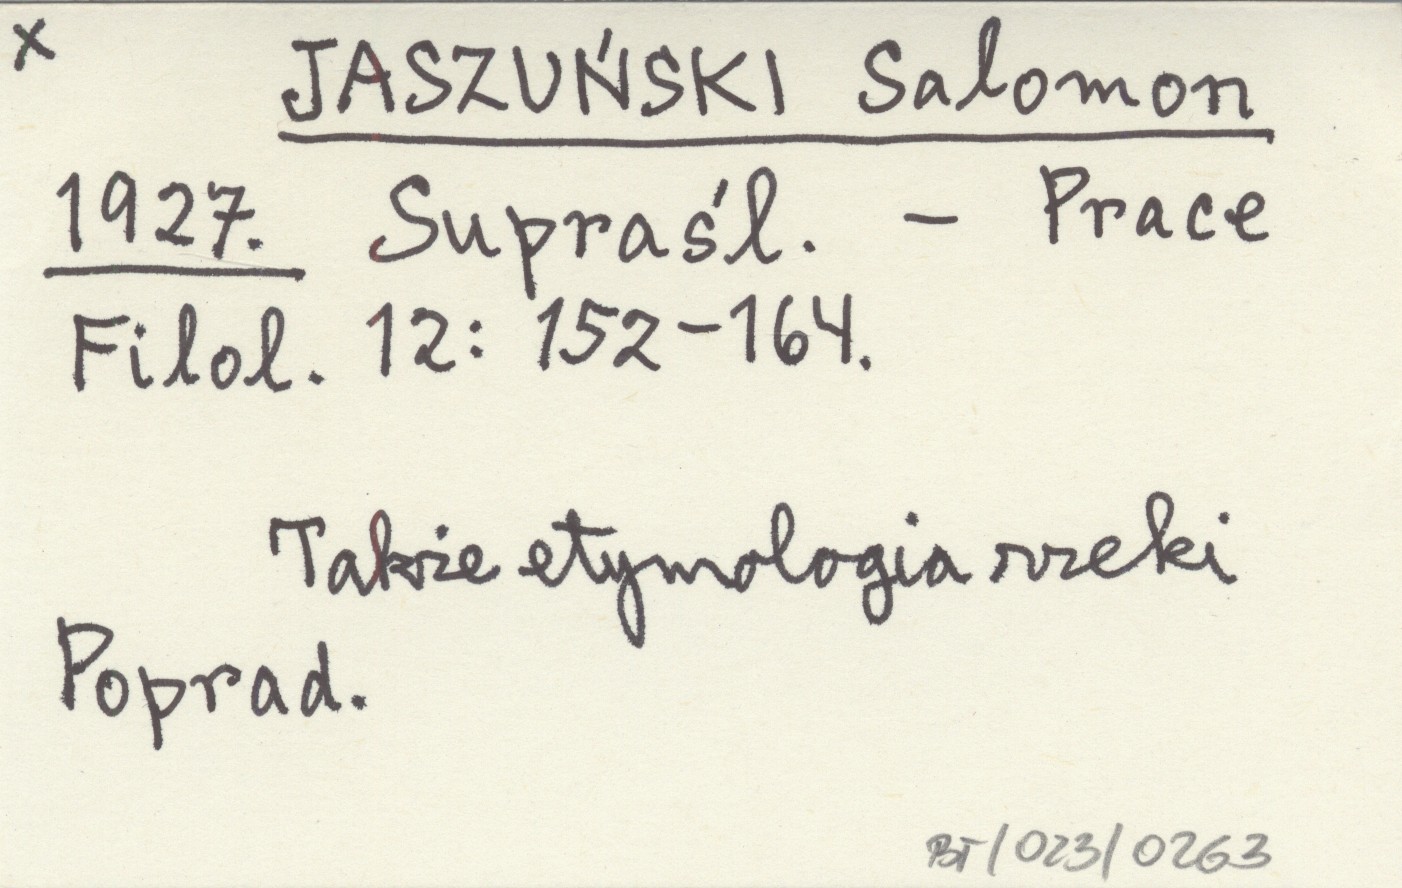 x
JASZUŃSKI Salomon
1927. Supraśl. - Prace
Filol. 12: 152-164.
Także etymologia rzeki
Poprad.
BT/023/0263